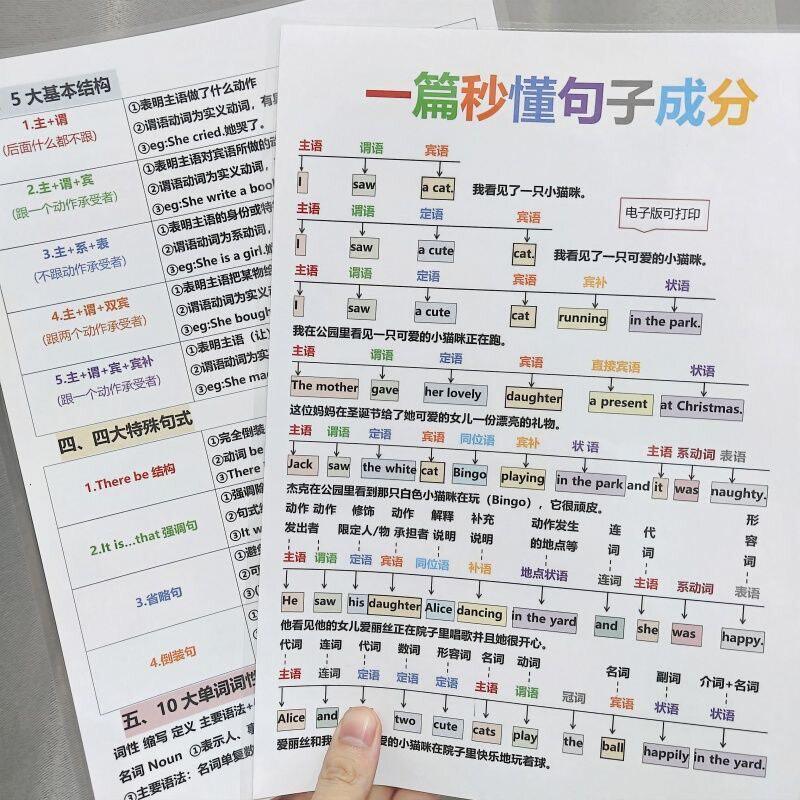 5 大基本结构
1.主+谓
(后面什么都不跟)
①表明主语做了什么动作
②谓语动词为实义动词，有
③eg:She cried.她哭了。
2.主+谓+宾
(跟一个动作承受者)
①表明主语对宾语所做的动
②谓语动词为实义动词，
③eg:She write a boo
3.主+系+表
(不跟动作承受者)
①表明主语的身份或特
②谓语动词为系动词，
③eg:She is a girl.
4.主+谓+双宾
(跟两个动作承受者)
①表明主语把某物给
②谓语动词为实义动
③eg:She bough
5.主+谓+宾+宾补
(跟一个动作承受者)
①表明主语（让）
②谓语动词为实
③eg:She ma
四、四大特殊句式
1.There be 结构
①完全倒装
②动词 be
③There
2.It is...that 强调句
①强调除
②句式
③It w
3.省略句
①避
②可
4.倒装句
五、10 大单词词性
词性 缩写 定义 主要语法+
名词 Noun ①表示人、事
③主要语法：名词单复数
一篇秒懂句子成分
主语 谓语 宾语
I saw a cat. 我看见了一只小猫咪。
电子版可打印
主语 谓语 定语 宾语
I saw a cute cat. 我看见了一只可爱的小猫咪。
主语 谓语 定语 宾语 宾补 状语
I saw a cute cat running in the park.
我在公园里看见一只可爱的小猫咪正在跑。
主语 谓语 定语 宾语 直接宾语 状语
The mother gave her lovely daughter a present at Christmas.
这位妈妈在圣诞节给了她可爱的女儿一份漂亮的礼物。
主语 谓语 定语 宾语 同位语 宾补 状语 主语 系动词 表语
Jack saw the white cat Bingo playing in the park and it was naughty.
杰克在公园里看到那只白色小猫咪在玩（Bingo），它很顽皮。
动作 动作 修饰 动作 解释 补充 动作发生 连 代 形
发出者 限定人/物 承担者 说明 说明 的地点等 词 词 容
词
主语 谓语 定语 宾语 同位语 补语 地点状语 连词 主语 系动词 表语
He saw his daughter Alice dancing in the yard and she was happy.
他看见他的女儿爱丽丝正在院子里唱歌并且她很开心。
代词 连词 代词 数词 形容词 名词 动词 名词 副词 介词+名词
主语 连词 定语 定语 定语 主语 谓语 冠词 宾语 状语 状语
Alice and two cute cats play the ball happily in the yard.
爱丽丝和我 爱的小猫咪在院子里快乐地玩着球。